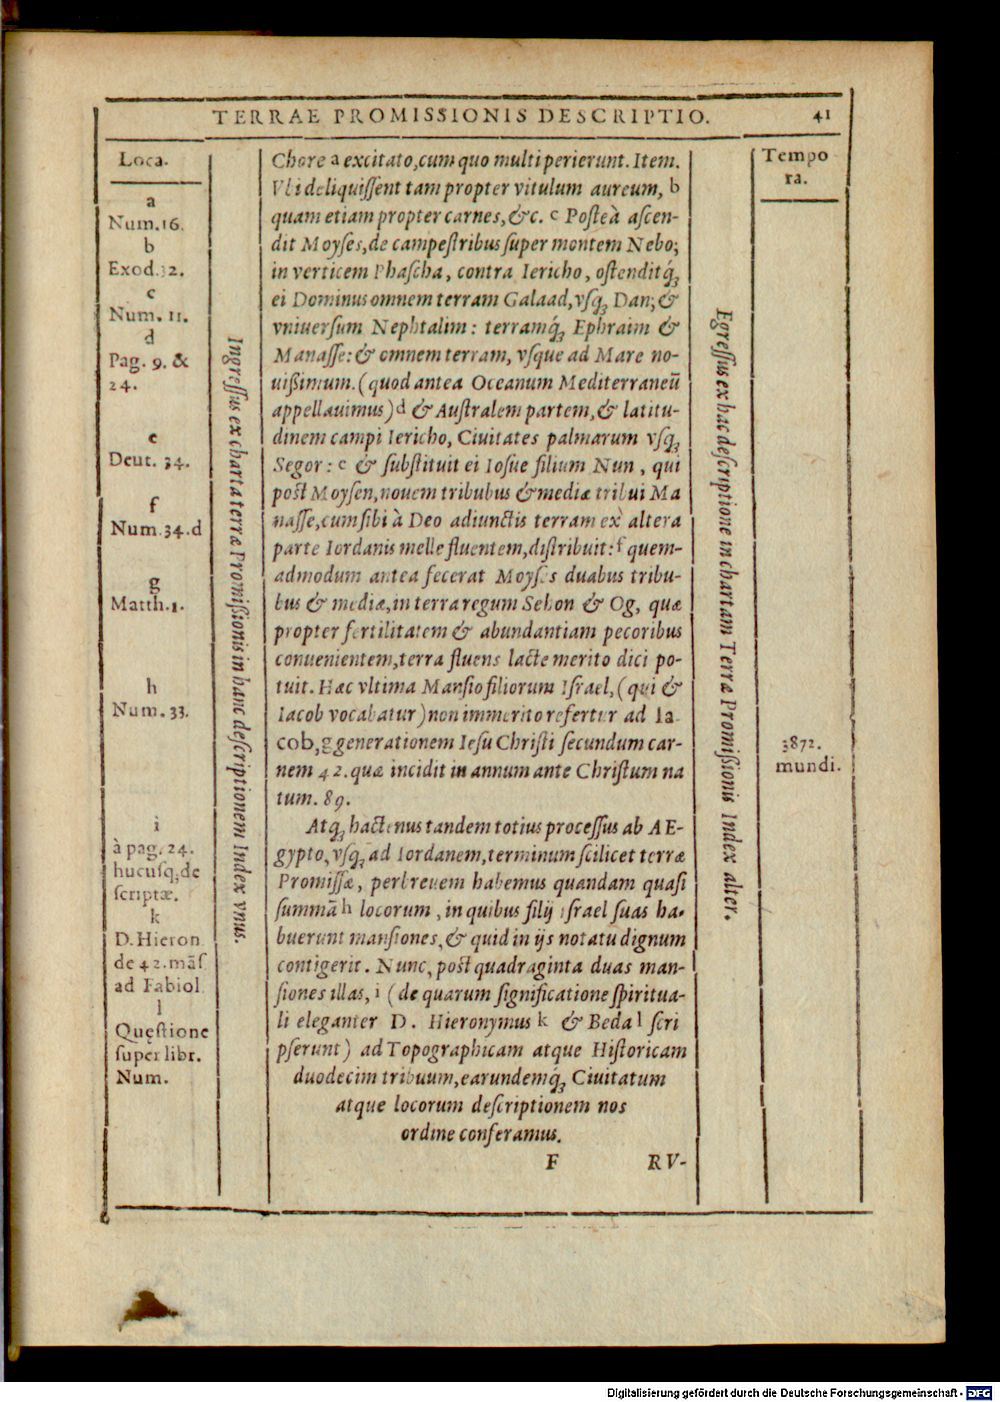 TERRAE PROMISSIONIS DESCRIPTIO. 41
Loca.
a
Num.16.
b
Exod.32.
c
Num. 11.
d
Pag. 9. &
24.
e
Deut. 34.
f
Num.34.d
g
Matth.1.
h
Num. 33.
i
à pag. 24.
hucusq, de
scriptæ.
k
D. Hieron
de 42. mãs
ad Fabiol
l
Quęstione
super libr.
Num.
Ingressus ex charta terræ Promißionis in hanc descriptionem Index vnus.
Chore a excitato, cum quo multi perierunt. Item.
Vbi deliquissent tam propter vitulum aureum, b
quam etiam propter carnes, &c. c Posteà ascen-
dit Moyses, de campestribus super montem Nebo;
in verticem Phascha, contra Iericho, ostenditq́ꝫ
ei Dominus omnem terram Galaad, vsqꝫ Dan; &
vniuersum Nephtalim: terramq́ꝫ Ephraim &
Manasse: & omnem terram, vsque ad Mare no-
uißimum. (quod antea Oceanum Mediterraneũ
appellauimus) d & Australem partem, & latitu-
dinem campi Iericho, Ciuitates palmarum vsqꝫ
Segor: e & substituit ei Iosue filium Nun, qui
post Moysen, nouem tribubus & mediæ tribui Ma
nasse, cum sibi à Deo adiunctis terram ex altera
parte Iordanis melle fluentem, distribuit: f quem-
admodum antea fecerat Moyses duabus tribu-
bus & mediæ, in terra regum Sehon & Og, quæ
propter fertilitatem & abundantiam pecoribus
conuenientem, terra fluens lacte merito dici po-
tuit. Hæc vltima Mansio filiorum Israel, (qui &
Iacob vocabatur) non immerito refertur ad Ia
cob, g generationem Iesu Christi secundum car-
nem 42. quæ incidit in annum ante Christum na
tum. 89.
Atqꝫ hactenus tandem totius processus ab AE-
gypto, vsqꝫ ad Iordanem, terminum scilicet terræ
Promissæ, perbreuem habemus quandam quasi
summã h locorum, in quibus filij Israel suas ha-
buerunt mansiones, & quid in ijs notatu dignum
contigerit. Nunc, post quadraginta duas man-
siones illas, i (de quarum significatione spiritua-
li eleganter D. Hieronymus k & Beda l scri
pserunt) ad Topographicam atque Historicam
duodecim tribuum, earundemq́ꝫ Ciuitatum
atque locorum descriptionem nos
ordine conferamus.
F RV-
Egressus ex hac descriptione in chartam Terræ Promißionis Index alter.
Tempo
ra.
3872.
mundi.
Digitalisierung gefördert durch die Deutsche Forschungsgemeinschaft - DFG